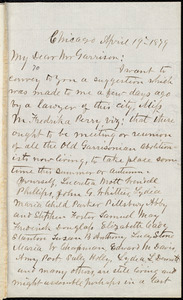 Chicago April 19th 1879
My Dear Mr Garrison:
I want to
convey to you a suggestion which
was made to me a few days ago
by a lawyer of this city, Miss
M. Fredrika Perry viz; that there
ought to be a meeting or reunion
of all the Old Garrisonian Abolition-
ists now living, to take place some
time this summer or autumn
Yourself, Lucretia Mott, Wendell
Phillips, John G. Whittier, Lydia
Maria Child Parker Pillsbury Abby
and Stephen Foster Samuel May
Frederick Douglass Elizabeth Cady
Stanton Susan B Anthony Lucy Stone
Maria W. Chapman Edward M. Davis
Amy Post Sally Holley, Lydia L. Dennett
and many others are still living and
might assemble perhaps in a last